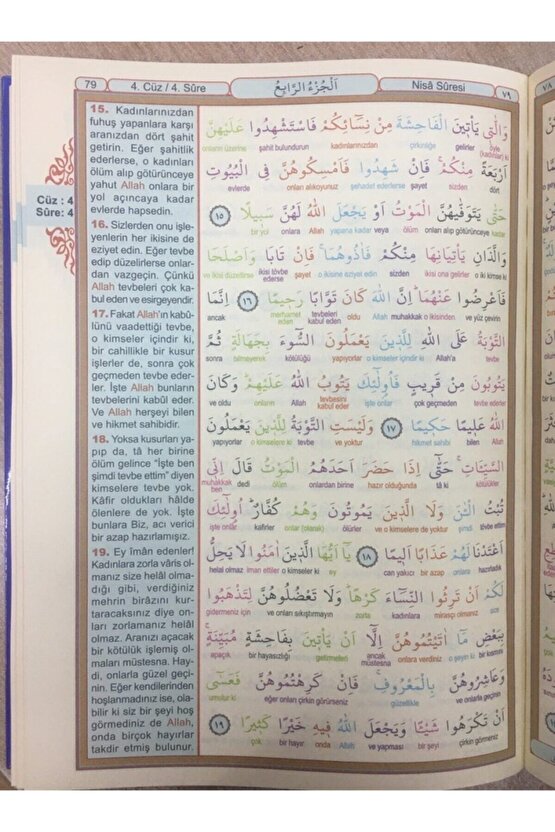 79 4. Cüz / 4. Sûre اَلْجُزْءُ الرَّابِعُ Nisâ Sûresi ٧٩
Cüz : 4
Sûre: 4
15. Kadınlarınızdan
fuhuş yapanlara karşı
aranızdan dört şahit
getirin. Eğer şahitlik
ederlerse, o kadınları
ölüm alıp götürünceye
yahut Allah onlara bir
yol açıncaya kadar
evlerde hapsedin.
16. Sizlerden onu işle-
yenlerin her ikisine de
eziyet edin. Eğer tevbe
edip düzelirlerse onlar-
dan vazgeçin. Çünkü
Allah tevbeleri çok ka-
bul eden ve esirgeyendir.
17. Fakat Allah'ın kabû-
lünü vaadettiği tevbe,
o kimseler içindir ki,
bir cahillikle bir kusur
işlerler de, sonra çok
geçmeden tevbe eder-
ler. İşte Allah bunların
tevbelerini kabul eder.
Ve Allah herşeyi bilen
ve hikmet sahibidir.
18. Yoksa kusurları ya-
pıp da, tâ her birine
ölüm gelince “İşte ben
şimdi tevbe ettim” diyen
kimselere tevbe yok.
Kâfir oldukları hâlde
ölenlere de yok. İşte
bunlara Biz, acı verici
bir azap hazırlamışız.
19. Ey îman edenler!
Kadınlara zorla vâris ol-
manız size helâl olma-
dığı gibi, verdiğiniz
mehrin birâzını kur-
taracaksınız diye on-
ları zorlamanız helâl
olmaz. Aranızı açacak
bir kötülük işlemiş ol-
maları müstesna. Hay-
di, onlarla güzel geçi-
nin. Eğer kendilerinden
hoşlanmadınız ise, ola-
bilir ki siz bir şeyi hoş
görmediniz de Allah,
onda birçok hayırlar
takdir etmiş bulunur.
وَالّٰتٖي يَأْتٖينَ الْفَاحِشَةَ مِنْ نِسَٓائِكُمْ فَاسْتَشْهِدُوا عَلَيْهِنَّ
onların üzerine şahit bulundurun kadınlarınızdan çirkinliğe gelirler öyle (kadınlar) ki
اَرْبَعَةً مِنْكُمْۚ فَاِنْ شَهِدُوا فَاَمْسِكُوهُنَّ فِي الْبُيُوتِ
evlerde onları alıkoyunuz şehadet ederlerse şayet sizden dört
حَتّٰى يَتَوَفّٰيهُنَّ الْمَوْتُ اَوْ يَجْعَلَ اللّٰهُ لَهُنَّ سَبٖيلًا ﴿١٥﴾
bir yol onlara Allah yapana kadar veya ölüm onları alıp götürünceye kadar
وَالَّذَانِ يَأْتِيَانِهَا مِنْكُمْ فَاٰذُوهُمَاۚ فَاِنْ تَابَا وَاَصْلَحَا
ve ikisi düzelirse ikisi tövbe ederse şayet o ikisine eziyet edin sizden ikisi ona gelirler o iki kimse ki
فَاَعْرِضُوا عَنْهُمَاۜ اِنَّ اللّٰهَ كَانَ تَوَّابًا رَحٖيمًا ﴿١٦﴾ اِنَّمَا
ancak merhamet eden tevbeleri kabul eden oldu Allah muhakkak o ikisinden ve yüz çevirin
التَّوْبَةُ عَلَى اللّٰهِ لِلَّذٖينَ يَعْمَلُونَ السُّٓوءَ بِجَهَالَةٍ ثُمَّ
sonra bilmeyerek kötülüğü yapıyorlar o kimseler içindir ki Allah'a tevbe
يَتُوبُونَ مِنْ قَرٖيبٍ فَاُولٰٓئِكَ يَتُوبُ اللّٰهُ عَلَيْهِمْۜ وَكَانَ
ve oldu onların Allah tevbesini kabul eder işte onlar çok geçmeden tevbe ederler
اللّٰهُ عَلٖيمًا حَكٖيمًا ﴿١٧﴾ وَلَيْسَتِ التَّوْبَةُ لِلَّذٖينَ يَعْمَلُونَ
yapıyorlar o kimselere ki tevbe ve yoktur hikmet sahibi bilen Allah
السَّيِّـَٔاتِۚ حَتّٰٓى اِذَا حَضَرَ اَحَدَهُمُ الْمَوْتُ قَالَ اِنّٖي
muhakkak ben dedi ölüm onlardan birine hazır olduğunda tâ ki kötülükler
تُبْتُ الْـٰٔنَ وَلَا الَّذٖينَ يَمُوتُونَ وَهُمْ كُفَّارٌۜ اُولٰٓئِكَ
işte onlar kafirler onlar (olarak) ölürler ve o kimselere de yoktur şimdi tövbe ettim
اَعْتَدْنَا لَهُمْ عَذَابًا اَلٖيمًا ﴿١٨﴾ يَٓا اَيُّهَا الَّذٖينَ اٰمَنُوا لَا يَحِلُّ
helal olmaz iman ettiler o kimseler ki ey can yakıcı bir azap onlara hazırladık
لَكُمْ اَنْ تَرِثُوا النِّسَٓاءَ كَرْهًاۜ وَلَا تَعْضُلُوهُنَّ لِتَذْهَبُوا
gidermeniz için ve onları sıkıştırmayın zorla kadınlara mirasçı olmanız size
بِبَعْضِ مَٓا اٰتَيْتُمُوهُنَّ اِلَّٓا اَنْ يَأْتٖينَ بِفَاحِشَةٍ مُبَيِّنَةٍۚ
apaçık bir hayasızlığı getirmeleri ancak müstesna onlara verdiniz o şeyin ki bir kısmını
وَعَاشِرُوهُنَّ بِالْمَعْرُوفِۚ فَاِنْ كَرِهْتُمُوهُنَّ فَعَسٰٓى
umulur ki eğer onları çirkin görürseniz güzellikle ve onlarla geçinin
اَنْ تَكْرَهُوا شَيْـًٔا وَيَجْعَلَ اللّٰهُ فٖيهِ خَيْرًا كَثٖيرًا ﴿١٩﴾
çok bir hayır onda Allah ve yapması bir şeyi çirkin görmeniz